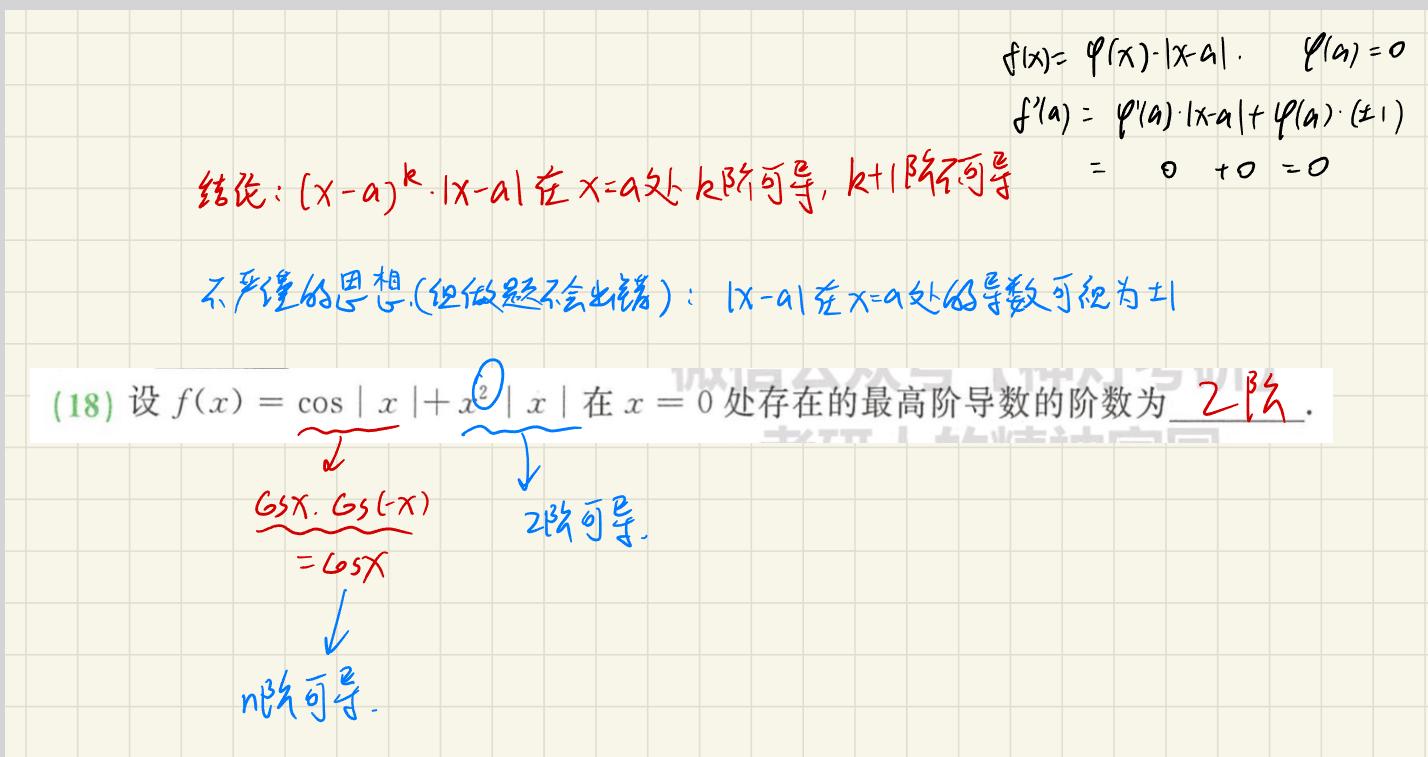 f(x)= φ(x)·|x-a|. φ(a)=0
f'(a) = φ'(a)·|x-a|+φ(a)·(±1)
= 0 +0 =0
结论: (x-a)^k·|x-a| 在 x=a处 k阶可导, k+1阶不可导
不严谨的思想.(但做题不会出错): |x-a|在x=a处的导数可视为±1
(18) 设 f(x) = cos | x |+ x² | x | 在 x = 0 处存在的最高阶导数的阶数为 2阶 .
cosx. cos(-x)
=cosx
2阶可导.
n阶可导.